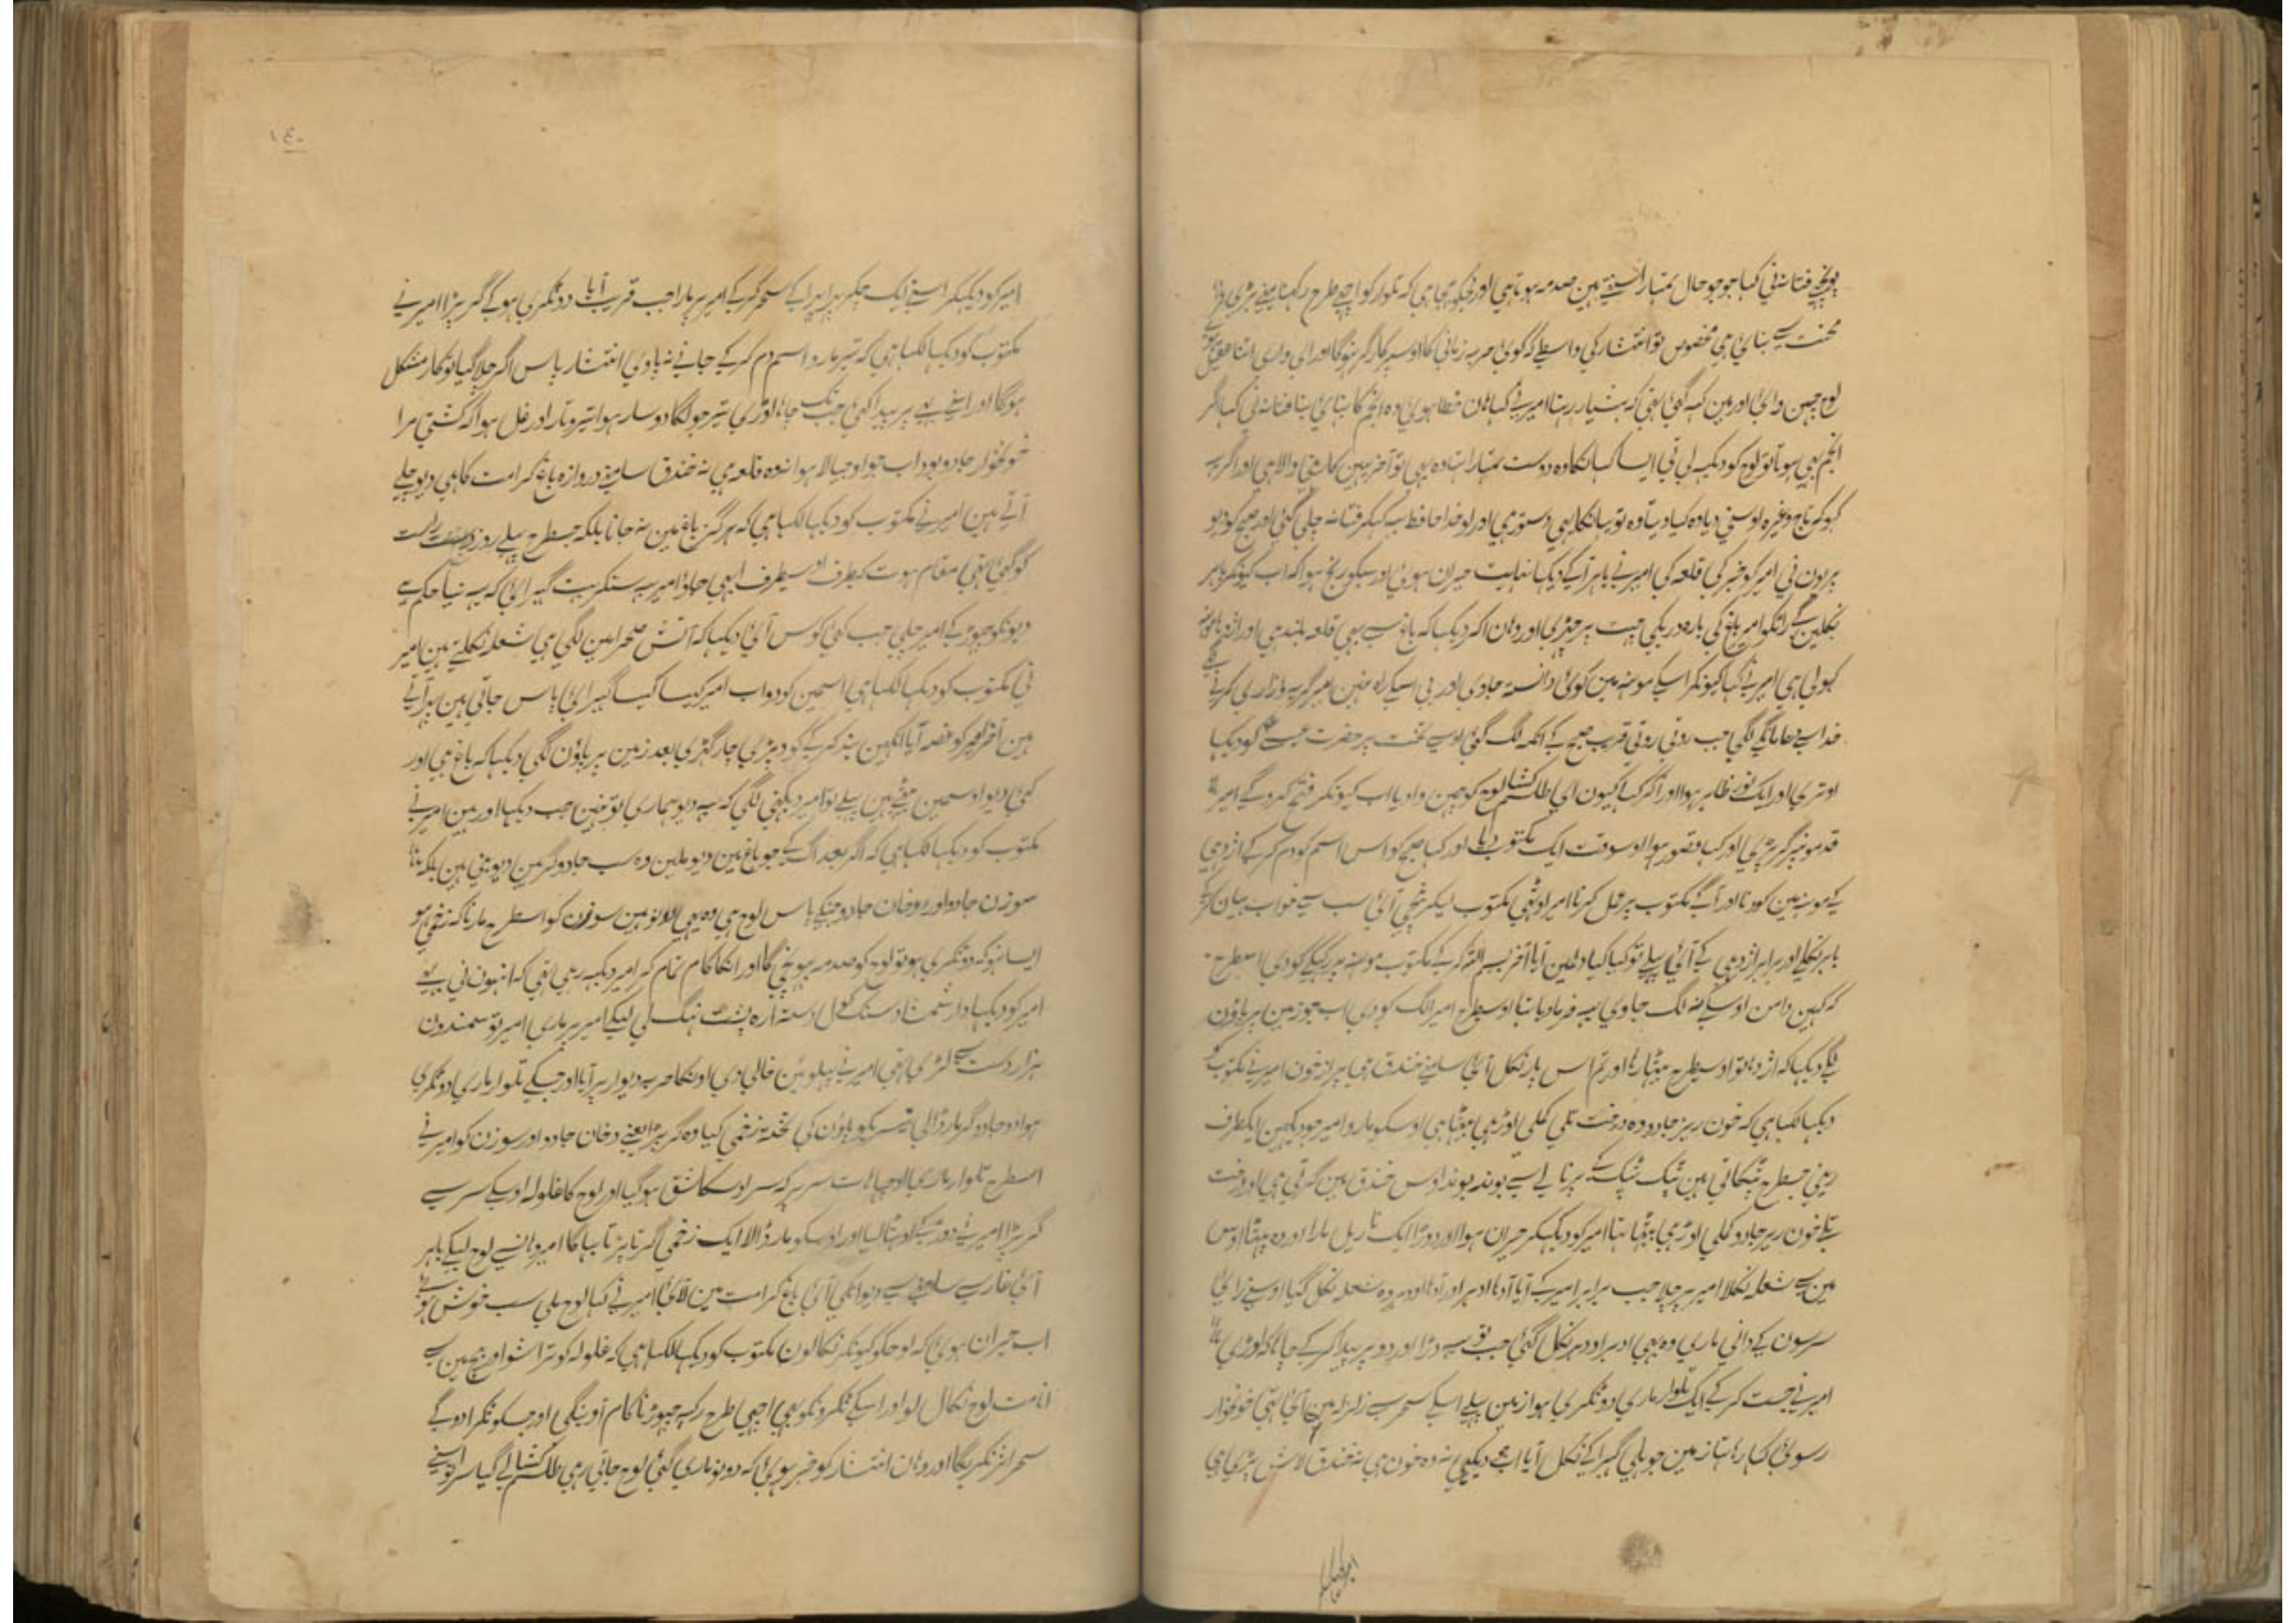 پونچی فتانہ نی کہا جو جو حال تمہارا سنتے ہین صدمہ ہوتا ہی اور مجکو کہ تلوار کو اچھے طرح رکہنا مینے بڑی
محنت سے بنائی ہی مخصوص تو انتشار کی واسطے کہ کوئی حربہ زمانی کا اوسپر کارگر نہوگا اور ای واری اتنا
لوح چہن وائی اور مین کہہ گئی تہی کہ ہشیار رہنا امیر نے کہا ہان خطا ہوئی وہ انجم کا بنائی بنا فتانہ نی کہا اگر
انجم بہی ہوتا تو لوح کو دیکہہ لی تی ایسا کہا انکا وہ دوست تمہارا استادہ بہی تو آخر ہین کا والا ہی اور اگر یہ
کہو کہ تاج وغیرہ اوسنی دیا وہ کیا دیتا وہ تو یہانکا ہی دستور ہی اور لو خدا حافظ یہ کہکر فتانہ چلی گئی اور صبح کو دیو
پریون نی امیر کو خبر کی قلعہ کی امیر نے باہر آ کے دیکہا نہایت حیران ہوئی اور سبکو رنج ہوا کہ اب کیونکر باہر
نکلین گے راتکو امیر باغ کی بارہ دریکی چہت پر چڑہی اور وہان اکر دیکہا کہ باغ سے بہی قلعہ بلند ہی اور اژدہا مونہہ
کہولی ہی امیر نے کہا کیونکر اسکے مونہہ مین کوئی دانستہ جاوی اور بی اسکے راہ نہین امیر گریہ و زاری کرنے
خدا سے دعا مانگے لگی جب روتی روتی قریب صبح کے انکہہ لگ گئی اوسے تخت پر حضرت کو دیکہا
اوتری اور ایک نور ظاہر ہوا اور اکر کہا کیون ای طلسم کشا لوح کو چہن وا دیا اب کیونکر فتح کروگے امیر
قدمونپر گر پڑی اور کہا قصور ہوا اوسوقت ایک مکتوب دیا اور کہا صبح کو اس اسم کو دم کر کے اژدہی
کے مونہہ مین کودنا اور آگے مکتوب پر عمل کرنا امیر اوٹہی مکتوب لیکر نیچی آئی سب سے خواب بیان کر کے
باہر نکلے اور برابر اژدہی کے آئی پہلے تو کہا کیا دلمین آیا آخر بسم اللہ کر کے مکتوب مونہہ پر رکہکے کودی اسطرح
کہ کہین دامن اوسکے نہ لگ جاوی یہ فرما دیا تہا اوسیطرح امیر الگ کودی اب جو زمین پر پاون
لگے دیکہا کہ اژدہا تو اوسیطرح بیٹہا رہا اور تم اس پار نکل آئی سامنے خندق ہی پر از خون امیر نے مکتوب کو
دیکہا لکہا ہی کہ خون ریز جادو وہ درخت تلی کملی اوڑہی بیٹہا ہی اوسکو مارو امیر جو دیکہین ایکطرف
رینی جسطرح ٹپکاتی ہین ٹپک ٹپک کے پرنالے سے بوند بوند اوس خندق مین گرتی ہی اور درخت
تلے خون ریز جادو کملی اوڑہی بیٹہا تہا امیر کو دیکہکر حیران ہوا اور دوڑا ایک ناریل مارا اور وہ پہٹا اوس
مین سے شعلہ نکلا امیر پر چلا جب برابر امیر کے آیا آدہا ادہر اور آدہا اودہر وہ شعلہ نکل گیا اوسنے رائی
سرسون کے دانی ماری وہ بہی ادہر اودہر نکل گئی جب تو یہ دڑا اور دو پر پیدا کر کے چاہا کہ اوڑی
امیر نے جست کر کے ایک تلوار ماری دو ٹکری ہوا زمین پہلے اسکے سحر سے زلزلہ مین آئی تہی خونخوار
رسوئی کہا رہا تہا زمین جو ہلی گہبرا کے نکل آیا اب جو دیکہی نہ وہ خون ہی نہ خندق لاش پڑی ہی
امیر کو دیکہکر
۱۴۰
امیر کو دیکہکر اسنے ایک چکر پر سحر کر کے امیر پر مارا جب قریب آیا دو ٹکری ہو کے گر پڑا امیر نے
مکتوب کو دیکہا لکہا ہی کہ تیر مارو اسم دم کر کے جانے نہ پاوی انتشار پاس اگر چلا گیا تو کار مشکل
ہوگا اور اپنے یے پر پیدا کئی جب تک چاہا اوڑی تیر جو لگا دوسار ہوا تیرہ و تار اور غل ہوا کہ کشتی مرا
خونخوار جادو بود اب جو اوجیالا ہوا نہ وہ قلعہ ہی نہ خندق سامنے دروازہ باغ کرامت کا ہی دیو چلے
آتے ہین امیر نے مکتوب کو دیکہا لکہا ہی کہ ہرگز باغ مین نہ جانا بلکہ جسطرح پہلے روز دست راست
کو گئی تہی مقام ہوت کیطرف اوسیطرف ابہی جاؤ امیر یہ سنکر بہت گہبرائی کہ یہ نیا حکم ہے
دیونکو چہوڑ کے امیر چلی جب کئی کوس آئی دیکہا کہ آتش صحرا مین لگی ہی شعلہ نکلتے ہین امیر
نی مکتوب کو دیکہا لکہا ہی اسمین کودو اب امیر کیسا کیسا گہبرائی پاس جاتی ہین پہر آتے
ہین آخر امیر کو غصہ آیا انکہین بند کر کے کود پڑی چار گہڑی بعد زمین پر پاؤن لگی دیکہا کہ باغ ہی اور
کئی دیو اوسمین بیٹہے ہین پہلے تو امیر دیکہنی لگی کہ یہ دیو ہماری تو نہین جب دیکہا اور ہین امیر نے
مکتوب کو دیکہا لکہا ہی کہ اگر بعد اگ کے جو باغ مین دیو ملین وہ سب جادوگر ہین دیو نہی ہین بلکہ
سوزن جادو اور دخان جادو جنکے پاس لوح ہی وہ بہی دونو ہین سوزن کو اسطرح مارنا کہ زخمی ہو
ایسا نہو کہ دو ٹکری ہو تو لوح کو صدمہ پہونچی گا اور انکا کام تمام کر امیر دیکہہ رہی تہی کہ انہون نی بہی
امیر کو دیکہا دار شمشاد سنگ آسیا ارہ پشت نہنگ لی لیکے امیر پر ماری امیر تو سمندون
ہزار دست سے لڑی تہی امیر نے پہلو مین خالی دی اونکا حربہ دیوار پر آیا اور جسکے تلوار ماری دو ٹکری
ہوا دو جادوگر مار ڈالی تیسریکو پاؤن کی زخمی کیا وہ گر پڑا یعنی دخان جادو اور سوزن کو امیر نے
اسطرح تلوار ماری سر پر کہ سر اوسکا شق ہو گیا اور لوح کا غلولہ اوسکے سر سے
گر پڑا امیر نے دوڑکے اوٹہا لیا اور اوسکو مار ڈالا ایک زخمی گرتا پڑتا بہاگا امیر وہانسے لوح لیکے باہر
آئی غار سے سامنے سے دیو انکی آئی باغ کرامت مین لائی امیر نے کہا لوح ملی سب خوش ہوے
اب حیران ہوئی کہ لوحکو کیونکر نکالون مکتوب کو دیکہا لکہا ہی کہ غلولہ کو تراشو اوسمین سے
امانت لوح نکال لو اور اسکے ٹکرونکو بہی اچہی طرح رکہہ چہوڑنا کام آوینگی اور جسکو ٹکرا دوگے
سحر اثر نکریگا اور وہان انتشار کو خبر ہوئی کہ دونو ماری گئی لوح جاتی رہی طلسم کشا لے گیا سر تو اپنے